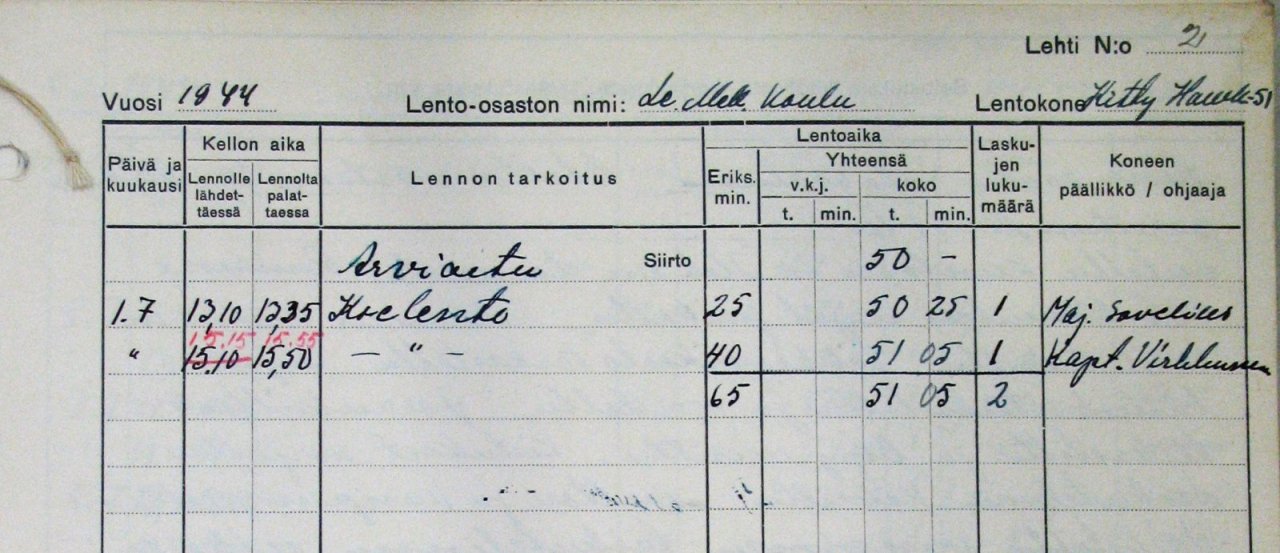 Lehti N:o 2
Vuosi 1944 Lento-osaston nimi: Le. Mek. Koulu Lentokone Kitty Hawk-51
Päivä ja kuukausi
Kellon aika
Lennolle lähdet-täessä
Lennolta palat-taessa
Lennon tarkoitus
Eriks. min.
Lentoaika
Yhteensä
v.k.j. koko
t. min. t. min.
Lasku-jen luku-määrä
Koneen päällikkö / ohjaaja
Arvioitu Siirto 50 -
1.7 13,10 13,35 Koelento 25 50 25 1 Maj. Sovelius
15.15 15.55
" 15.10 15,50 — " — 40 51 05 1 Kapt. Virkkunen
65 51 05 2